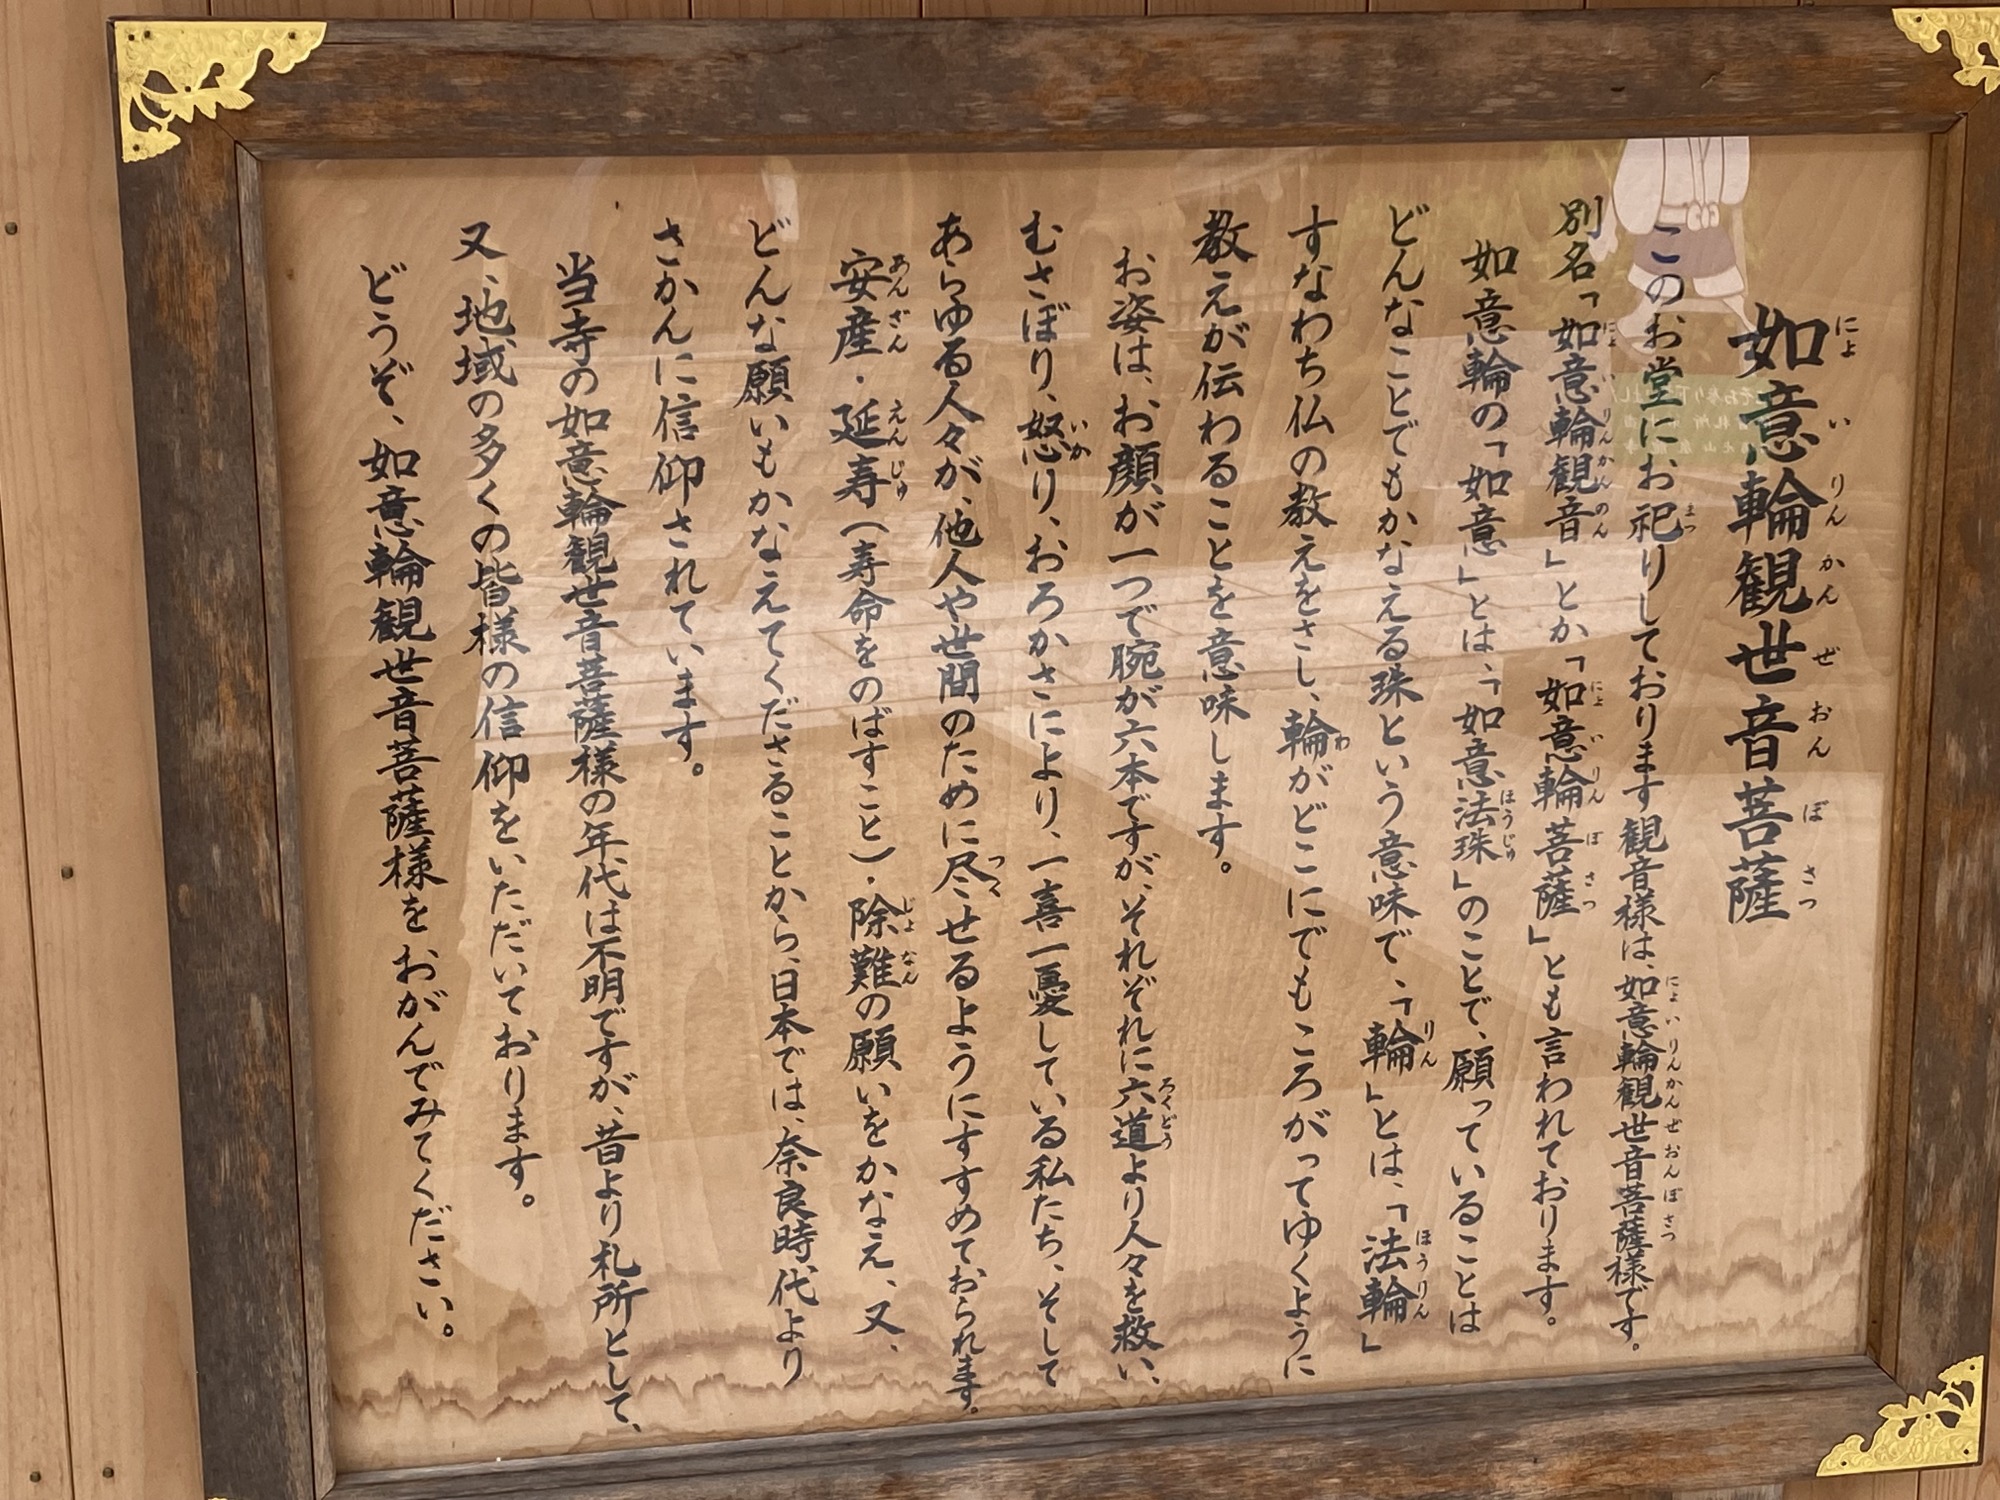 如意輪観世音菩薩
このお堂にお祀りしております観音様は、如意輪観世音菩薩様です。
別名「如意輪観音」とか「如意輪菩薩」とも言われております。
如意輪の「如意」とは、「如意法珠」のことで、願っていることは
どんなことでもかなえる珠という意味で、「輪」とは、「法輪」
すなわち仏の教えをさし、輪がどこにでもころがってゆくように
教えが伝わることを意味します。
お姿は、お顔が一つで腕が六本ですが、それぞれに六道より人々を救い、
むさぼり、怒り、おろかさにより、一喜一憂している私たち、そして
あらゆる人々が、他人や世間のために尽くせるようにすすめておられます。
安産・延寿(寿命をのばすこと)・除難の願いをかなえ、又、
どんな願いもかなえてくださることから、日本では、奈良時代より
さかんに信仰されています。
当寺の如意輪観世音菩薩様の年代は不明ですが、昔より札所として、
又、地域の多くの皆様の信仰をいただいております。
どうぞ、如意輪観世音菩薩様をおがんでみてください。